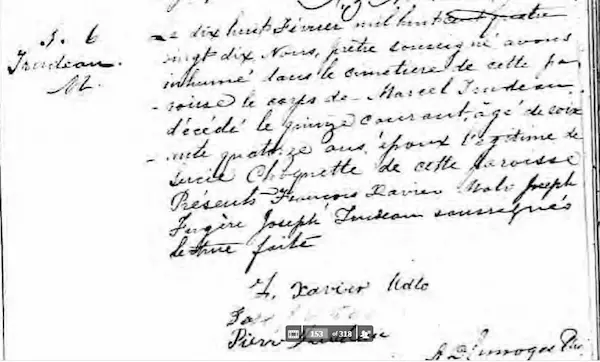 S. 6
Trudeau.
M.
Le dix huit Février mil huit cent quatre
vingt dix Nous, prêtre soussigné avons
inhumé dans le cimetière de cette pa
-roisse le corps de Marcel Trudeau
décédé le quinze courant, âgé de soix
-ante quatorze ans, époux légitime de
Lucie Choquette de cette paroisse
Présents François Xavier Joseph
Fugère Joseph Trudeau soussignés
lecture faite
F. Xavier
Pierre
153 of 318